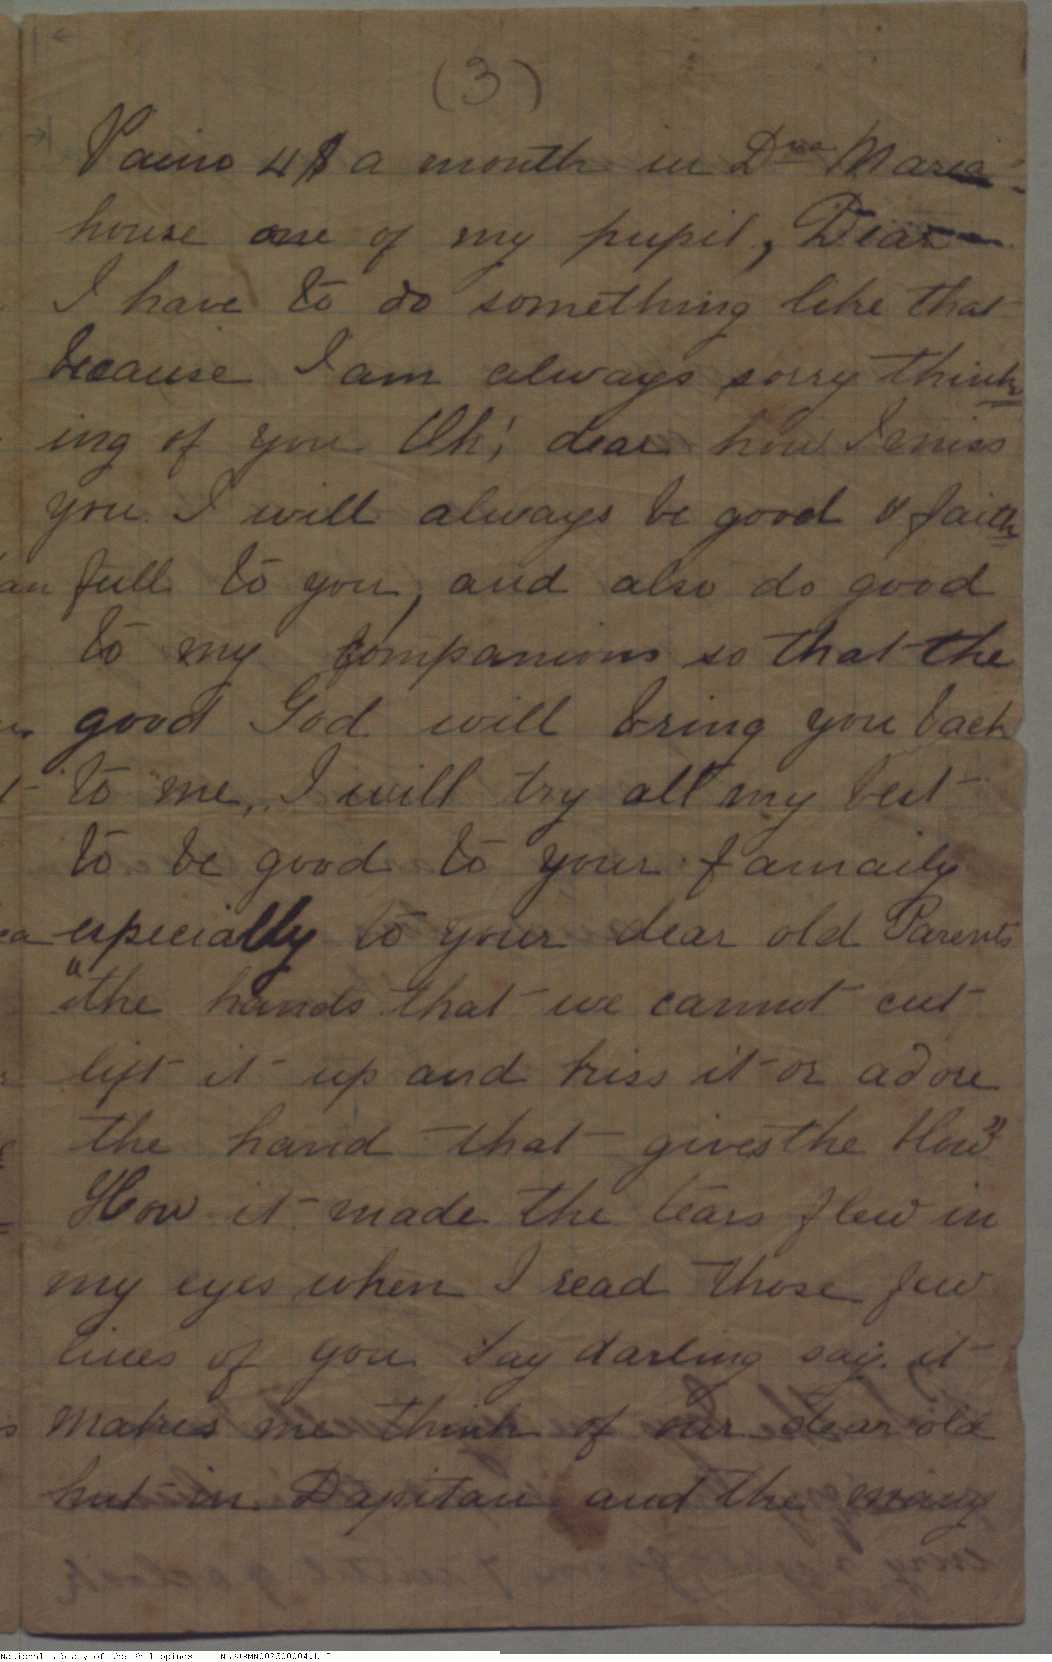 (3)
Paino 4$ a month in Dna Maria
house one of my pupil, Dear
I have to do something like that
because I am always sorry think
ing of you Oh! dear how I miss
you. I will always be good & faith
full to you, and also do good
to my companions so that the
good God will bring you back
to me, I will try all my best
to be good to your famaily
especially to your dear old Parents
"the hands that we cannot cut
lift it up and kiss it or adore
the hand that gives the blow"
How it made the tears flew in
my eyes when I read those few
lines of you. Say darling say it
makes me think of our dear old
hut in Dapitan and the many
National Library of the Philippines